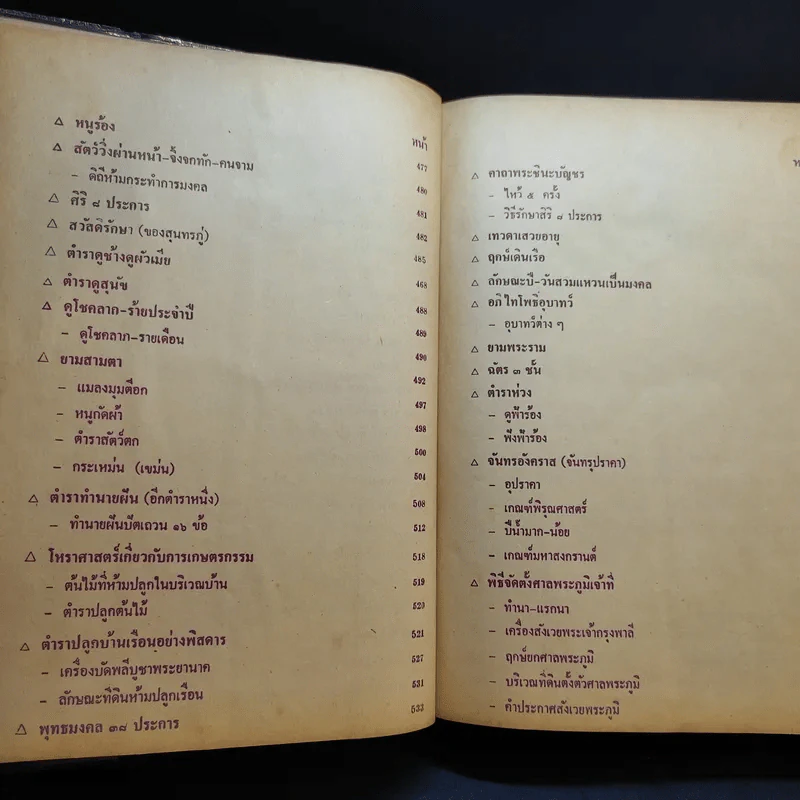 หน้า
△ หนูร้อง 477
△ สัตว์วิ่งผ่านหน้า-จิ้งจกทัก-คนจาม 480
– ดิถีห้ามกระทำการมงคล 481
△ ศิริ ๘ ประการ 482
△ สวัสดิรักษา (ของสุนทรภู่) 485
△ ตำราดูช้างดูผัวเมีย 468
△ ตำราดูสุนัข 488
△ ดูโชคลาภ-ร้ายประจำปี 489
– ดูโชคลาภ-รายเดือน 490
△ ยามสามตา 492
– แมลงมุมตีอก 497
– หนูกัดผ้า 498
– ตำราสัตว์ตก 500
– กระเหม่น (เขม่น) 504
△ ตำราทำนายฝัน (อีกตำราหนึ่ง) 508
– ทำนายฝันปัตเถวน ๑๖ ข้อ 512
△ โหราศาสตร์เกี่ยวกับการเกษตรกรรม 518
– ต้นไม้ที่ห้ามปลูกในบริเวณบ้าน 519
– ตำราปลูกต้นไม้ 520
△ ตำราปลูกบ้านเรือนอย่างพิสดาร 521
– เครื่องบัดพลีบูชาพระยานาค 527
– ลักษณะที่ดินห้ามปลูกเรือน 531
△ พุทธมงคล ๓๘ ประการ 533
△ คาถาพระชินะบัญชร
– ไหว้ ๕ ครั้ง
– วิธีรักษาสิริ ๘ ประการ
△ เทวดาเสวยอายุ
△ ฤกษ์เดินเรือ
△ ลักษณะปี-วันสวมแหวนเป็นมงคล
△ อภิไทโพธิ์อุบาทว์
– อุบาทว์ต่าง ๆ
△ ยามพระราม
△ ฉัตร ๓ ชั้น
△ ตำราห่วง
– ดูฟ้าร้อง
– ฟังฟ้าร้อง
△ จันทรอังคราส (จันทรุปราคา)
– อุปราคา
– เกณฑ์พิรุณศาสตร์
– ปีน้ำมาก-น้อย
– เกณฑ์มหาสงกรานต์
△ พิธีจัดตั้งศาลพระภูมิเจ้าที่
– ทำนา-แรกนา
– เครื่องสังเวยพระเจ้ากรุงพาลี
– ฤกษ์ยกศาลพระภูมิ
– บริเวณที่ดินตั้งตัวศาลพระภูมิ
– คำประกาศสังเวยพระภูมิ